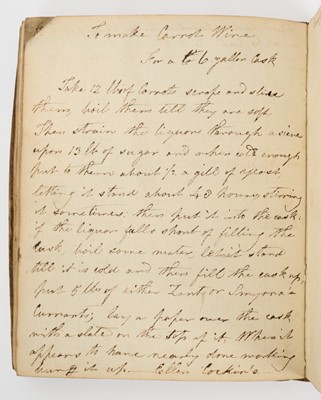 To make Carrot Wine
For a 6 gallon Cask
Take 12 lb of Carrots scrape and slice
them, boil them till they are soft
Then strain the liquor through a sieve
upon 13 lb of sugar and when cold enough
put to them about 1/2 a gill of yeast
letting it stand about 48 hours stirring
it sometimes. then put it into the cask:
if the liquor falls short of filling the
cask, boil some water, let it stand
till it is cold and then fill the cask up,
put 5 lbs of either Zant, or Smyrona
Currants; lay a paper over the cask
with a slate on the top of it. When it
appears to have nearly done working
it up. Ellen